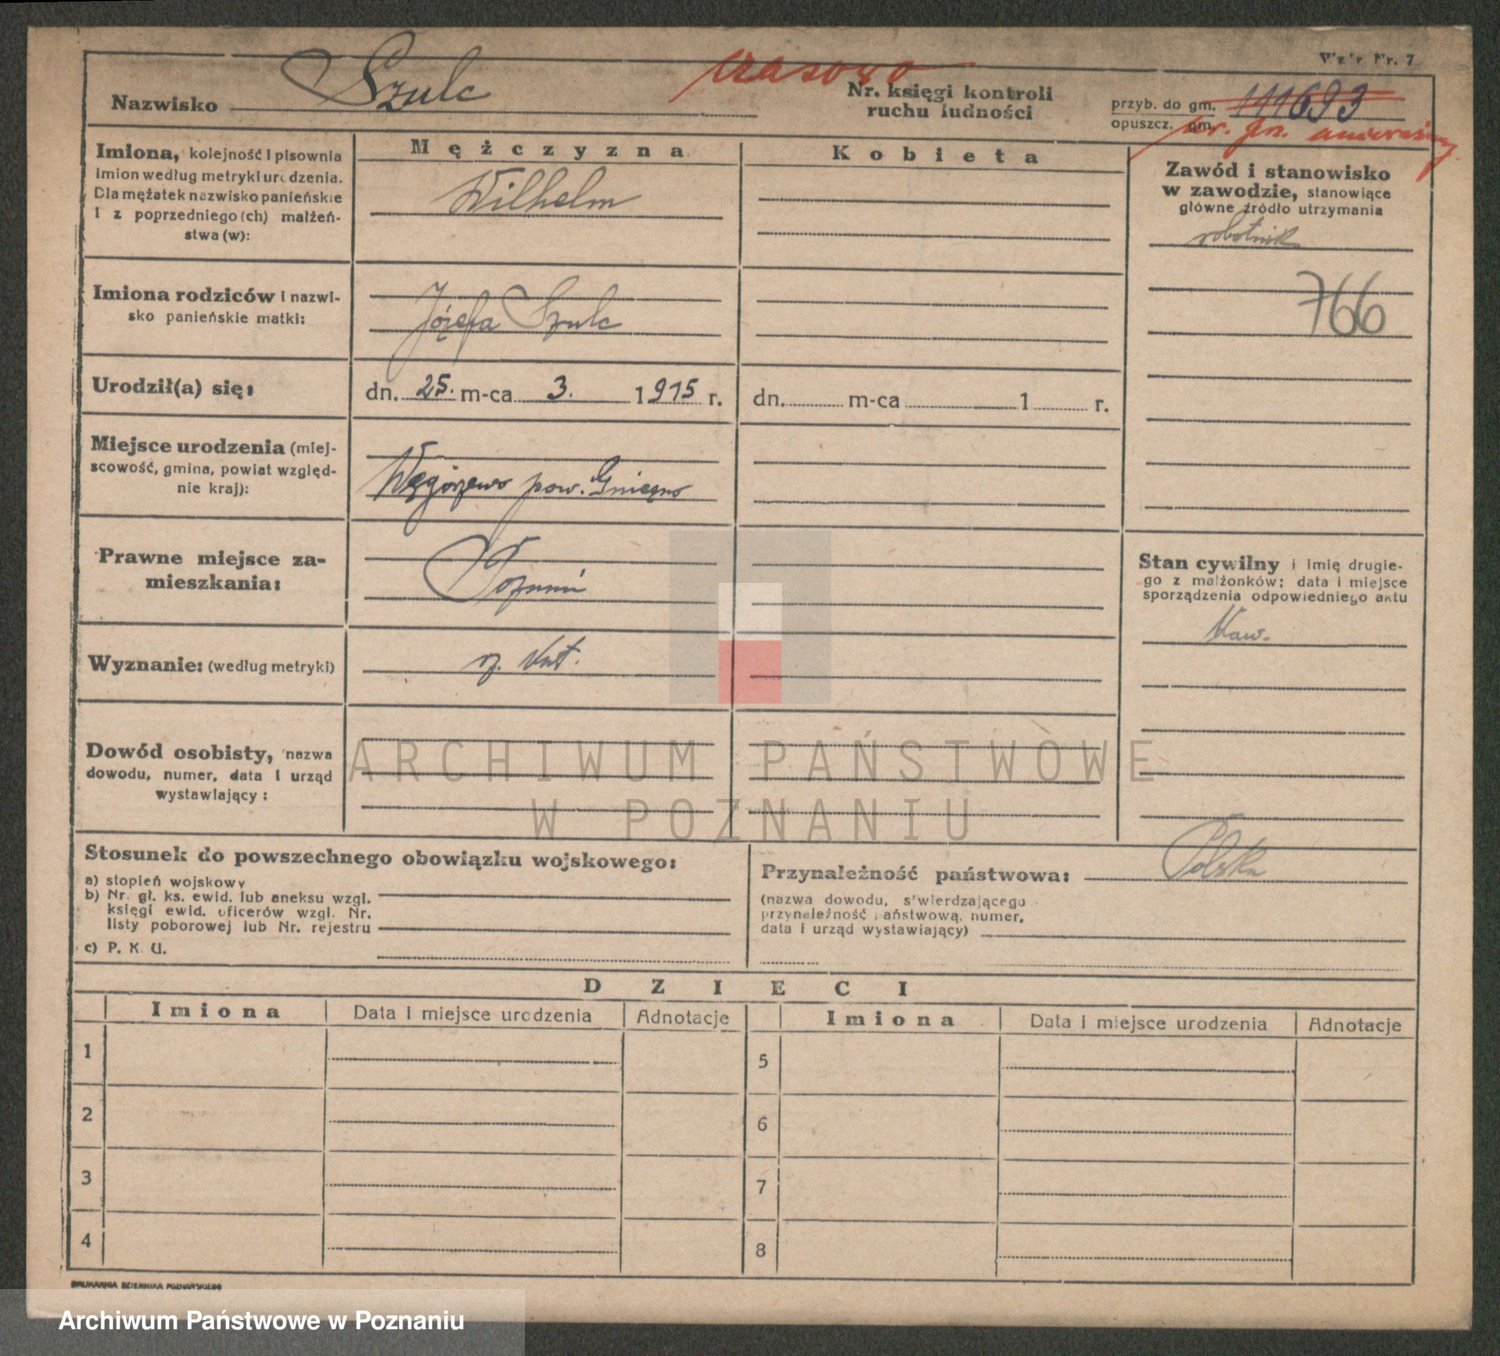 Wzór Nr. 7
czasowo
Nazwisko Szulc
Nr. księgi kontroli
ruchu ludności
przyb. do gm. 111693
opuszcz. gm.
Imiona, kolejność i pisownia
imion według metryki urodzenia.
Dla mężatek nazwisko panieńskie
i z poprzedniego (ch) małżeń-
stwa (w):
Mężczyzna
Wilhelm
Kobieta
Zawód i stanowisko
w zawodzie, stanowiące
główne źródło utrzymania
robotnik
766
Imiona rodziców i nazwi-
sko panieńskie matki:
Józefa Szulc
Urodził(a) się:
dn. 25. m-ca 3. 1915 r.
dn. m-ca 1 r.
Miejsce urodzenia (miej-
scowość, gmina, powiat względ-
nie kraj):
Węgorzewo pow. Gniezno
Prawne miejsce za-
mieszkania:
Poznań
Stan cywilny i imię drugie-
go z małżonków; data i miejsce
sporządzenia odpowiedniego aktu
kaw.
Wyznanie: (według metryki)
rz. kat.
Dowód osobisty, nazwa
dowodu, numer, data i urząd
wystawiający:
ARCHIWUM PAŃSTWOWE
W POZNANIU
Stosunek do powszechnego obowiązku wojskowego:
a) stopień wojskowy
b) Nr. gł. ks. ewid. lub aneksu wzgl.
księgi ewid. oficerów wzgl. Nr.
listy poborowej lub Nr. rejestru
c) P. K. U.
Przynależność państwowa: Polska
(nazwa dowodu, stwierdzającego
przynależność państwową, numer,
data i urząd wystawiający)
DZIECI
Imiona Data i miejsce urodzenia Adnotacje Imiona Data i miejsce urodzenia Adnotacje
1 5
2 6
3 7
4 8
DRUKARNIA DZIENNIKA POZNAŃSKIEGO
Archiwum Państwowe w Poznaniu